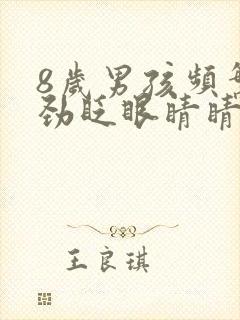 8歲男孩頻繁
勁眨眼睛晴
王良琪